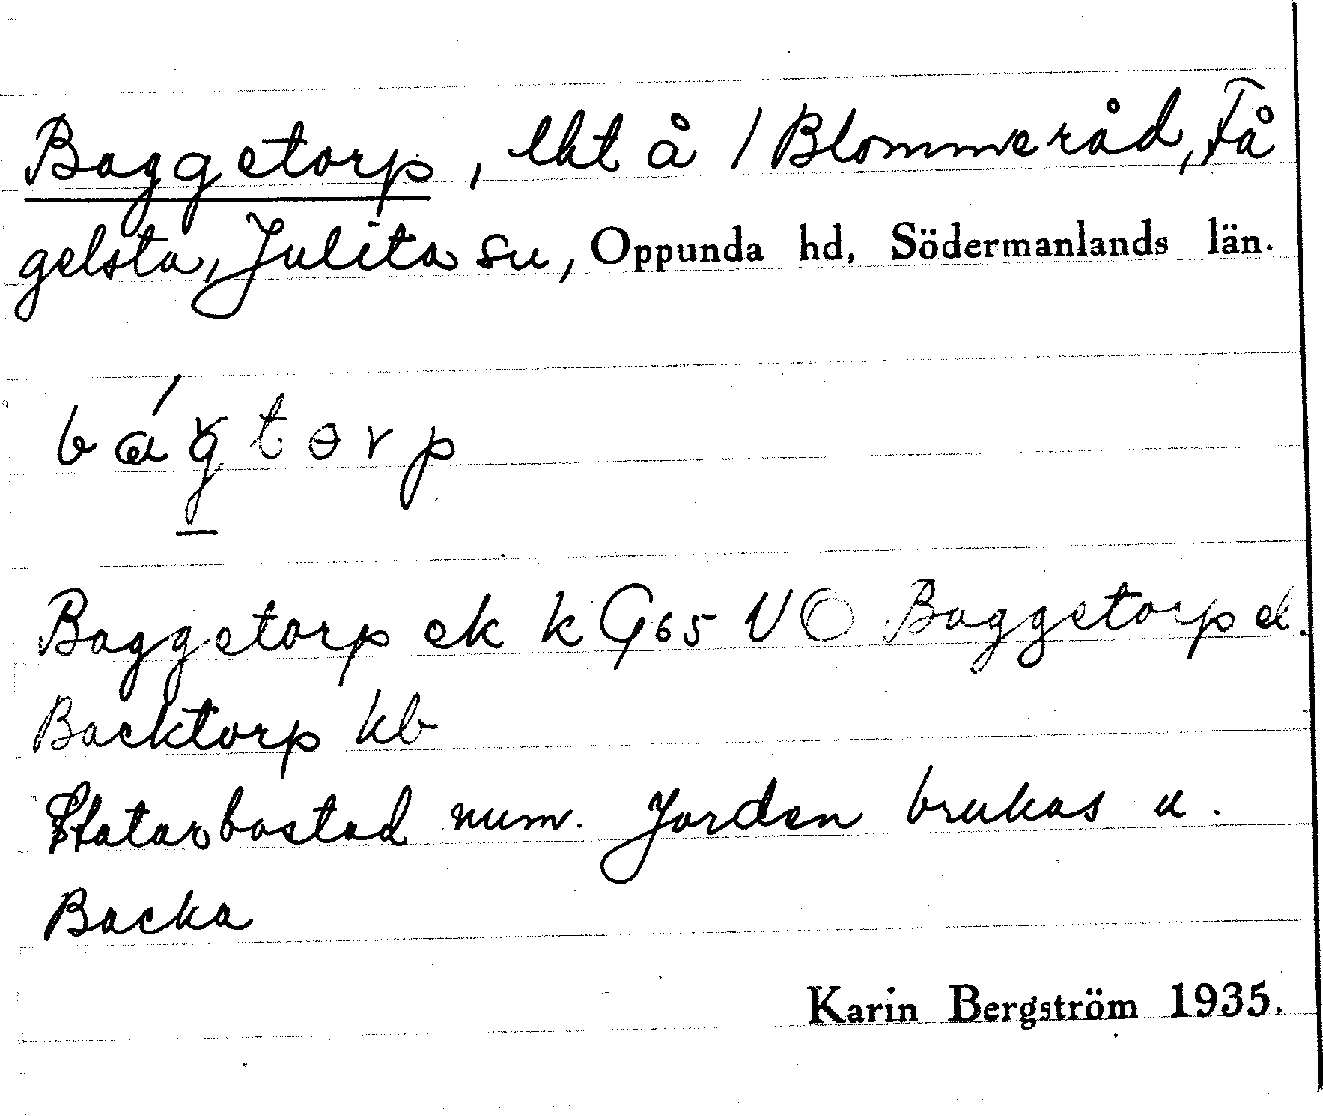 Baggetorp, lht å / Blommeråd, Få
gelsta, Julita sn, Oppunda hd, Södermanlands län.
bágtorp
Baggetorp ek k G65 VO Baggetorp el.
Backtorp kb
Statarbostad num. Jorden brukas u.
Backa
Karin Bergström 1935.